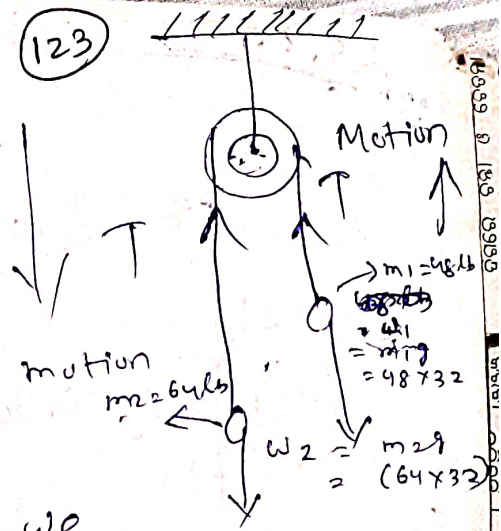 123
Motion
T
T
m1 = 48 lb
= m1g
= 48 × 32
motion
m2 = 64 lb
W2 = m2g
= (64 × 32)
we